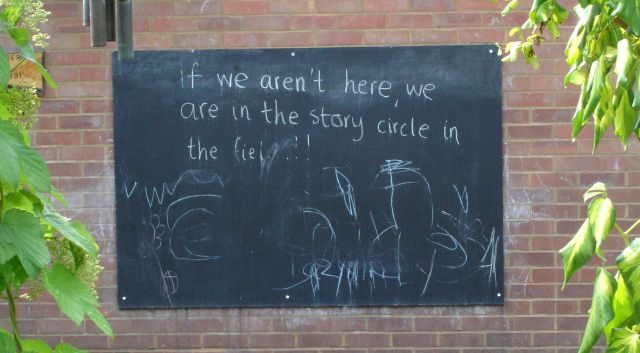 If we aren't here, we
are in the story circle in
the field !!